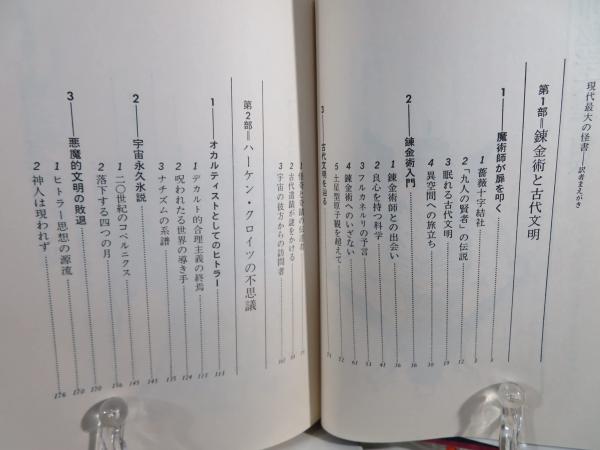 現代最大の怪書——訳者まえがき
第1部＝錬金術と古代文明
1——魔術師が扉を叩く 3
1 薔薇十字結社 3
2 「九人の賢者」の伝説 12
3 眠れる古代文明 19
4 異空間への旅立ち
2——錬金術入門 36
1 錬金術師との出会い 36
2 良心を持つ科学 41
3 フルカネルリの予言 53
4 錬金術へのいざない 61
5 土星型原子観を超えて 72
3——古代文明を辿る 77
2 古代遺蹟が謎をかける
3 宇宙の彼方からの訪問者 102
第2部＝ハーケン・クロイツの不思議
1——オカルティストとしてのヒトラー 115
1 デカルト的合理主義の終焉 115
2 呪われたる世界の導き手 124
3 ナチズムの系譜 135
2——宇宙永久氷説 145
1 二〇世紀のコペルニクス 145
2 落下する四つの月 156
3——悪魔的文明の敗退 170
1 ヒトラー思想の源流 170
2 神人は現われず 176